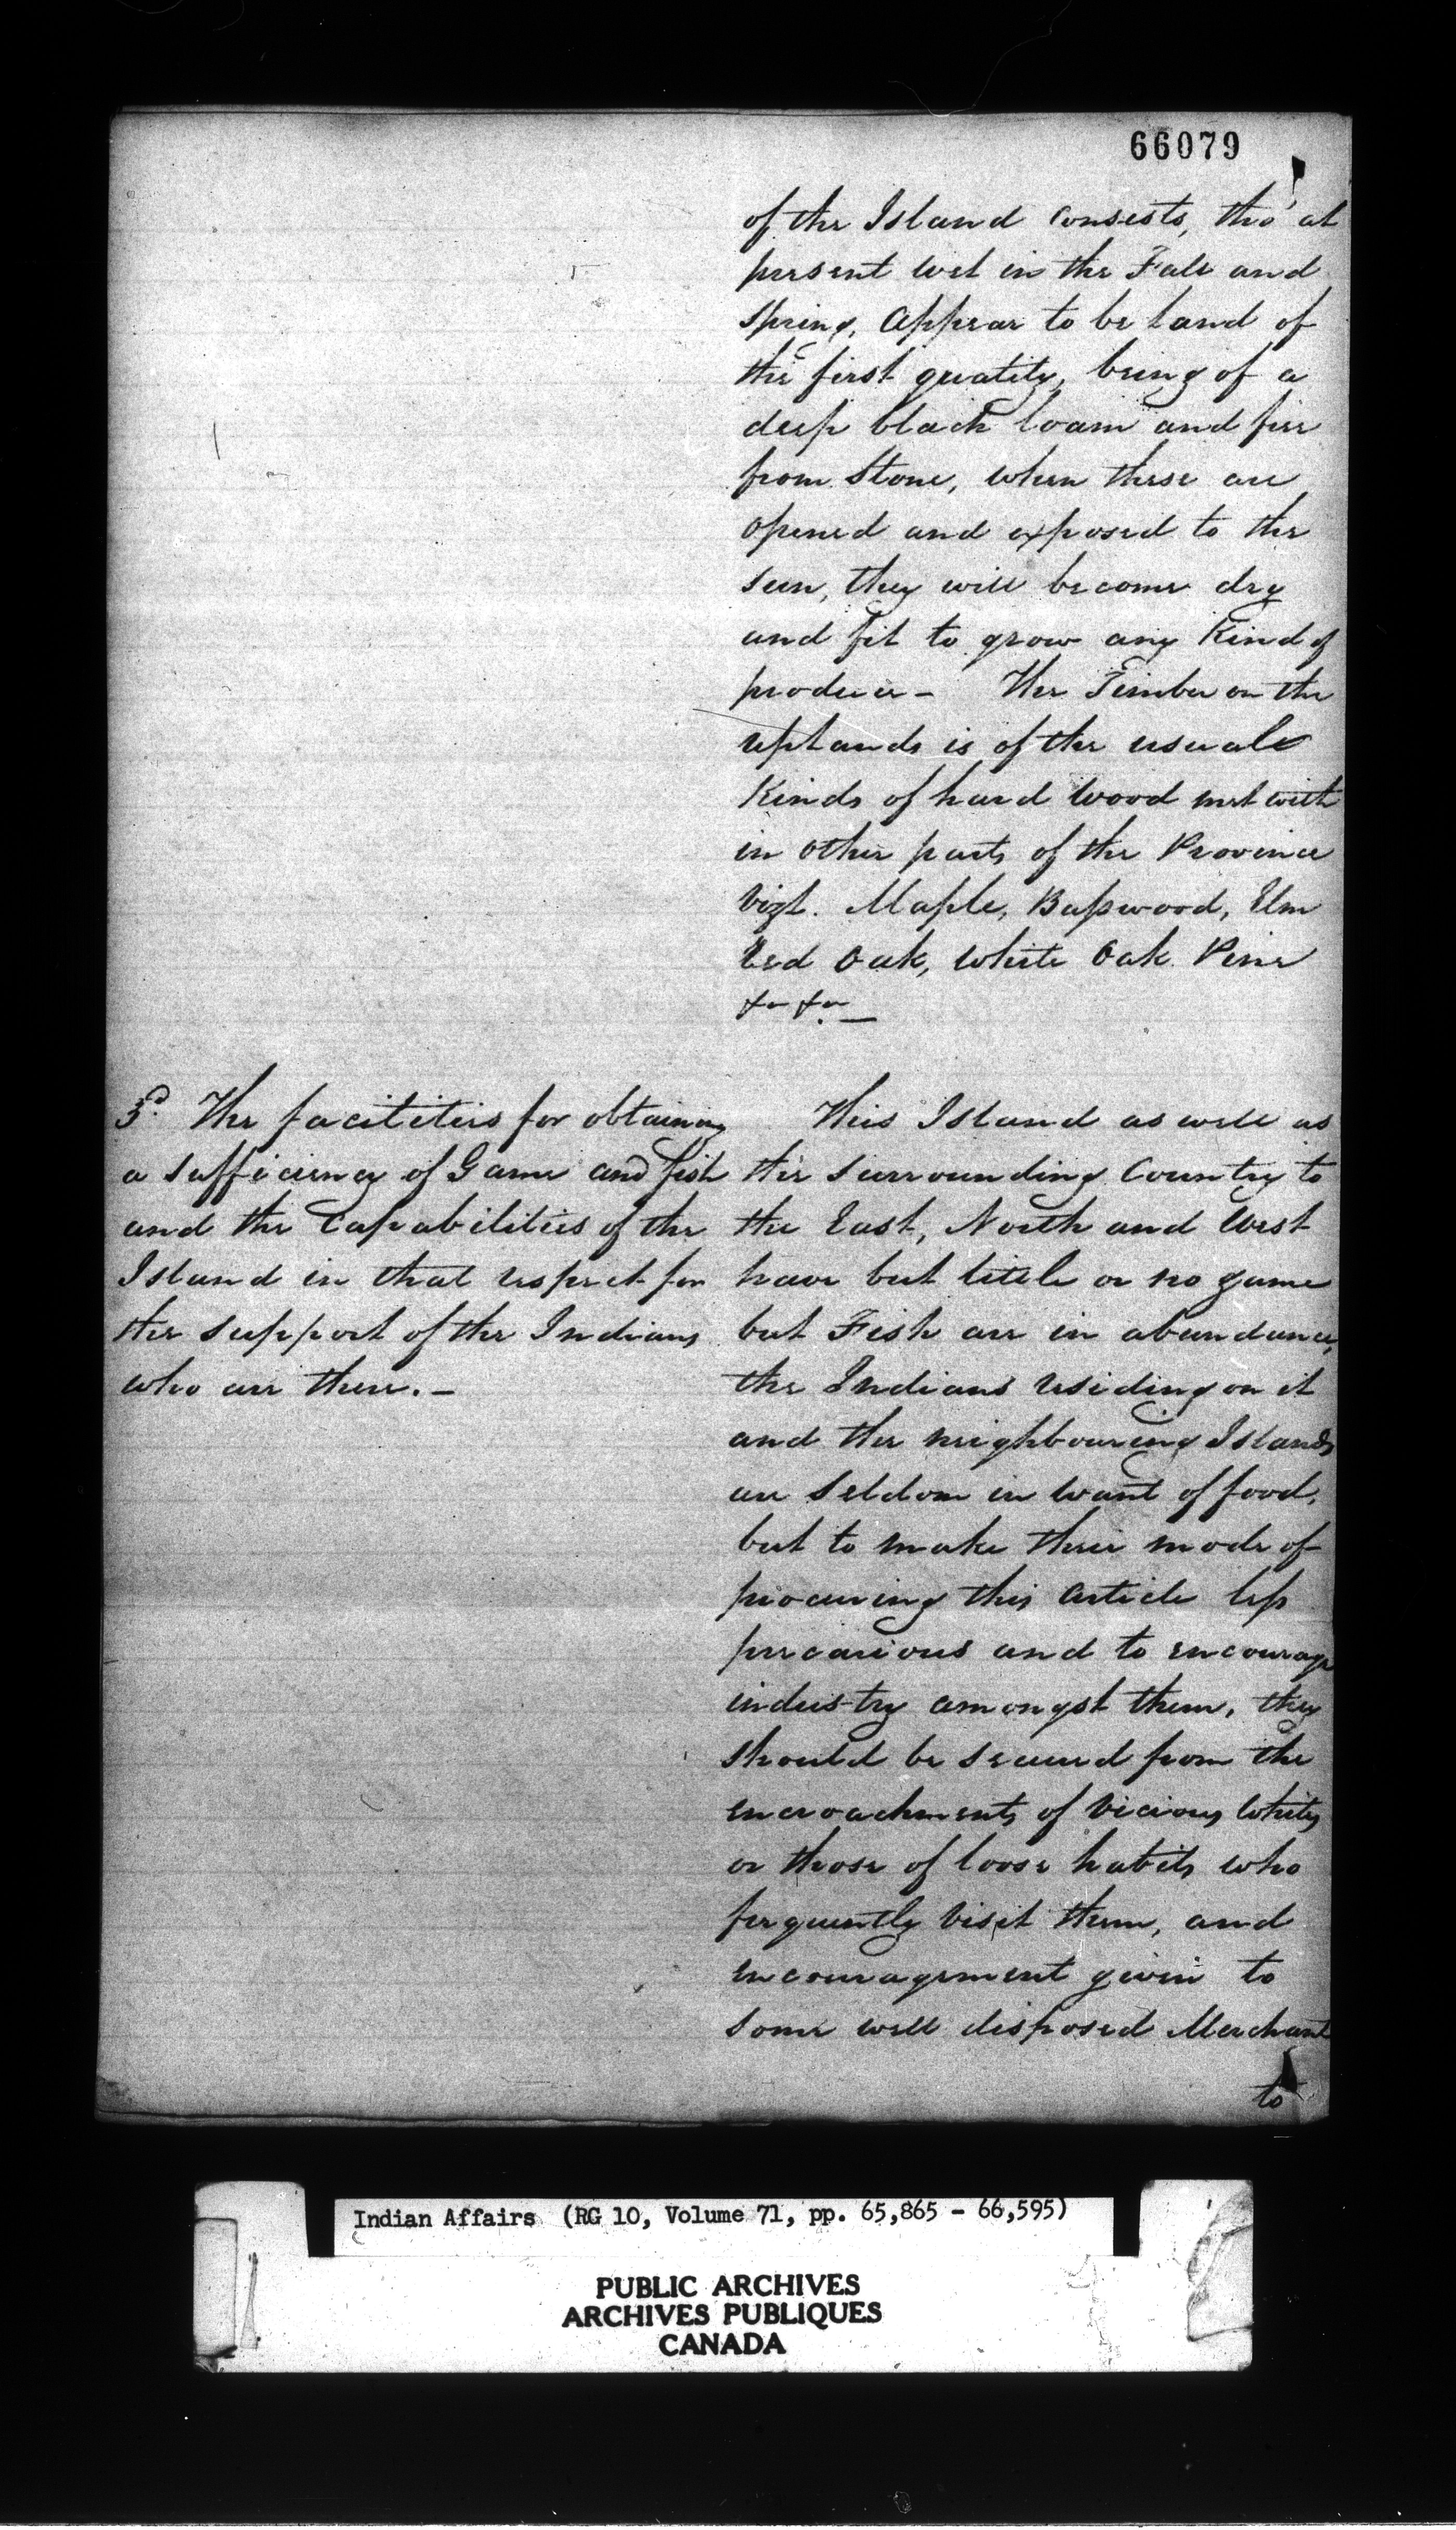 66079
of the Island consists, tho' at
present wet in the Fall and
Spring, appear to be land of
the first quality, being of a
deep black loam and free
from Stone, when these are
opened and exposed to the
sun, they will become dry
and fit to grow any Kind of
produce - The Timber on the
uplands is of the usual
Kinds of hard wood met with
in other parts of the Province
Vizt. Maple, Basswood, Elm
Red Oak, White Oak Pine
&c &c. _
3d. The facilities for obtaining
a sufficiency of Game and fish
and the Capabilities of the
Island in that respect for
the support of the Indians
who are there. -
This Island as well as
the surrounding Country to
the East, North and West
have but little or no game
but Fish are in abundance,
the Indians residing on it
and the neighbouring Islands
are seldom in want of food,
but to make their mode of
procuring this article less
precarious and to encourage
industry amongst them, they
should be secured from the
encroachments of vicious Whites
or those of loose habits who
frequently visit them, and
encouragement given to
some well disposed Merchant
to
Indian Affairs (RG 10, Volume 71, pp. 65,865 - 66,595)
PUBLIC ARCHIVES
ARCHIVES PUBLIQUES
CANADA